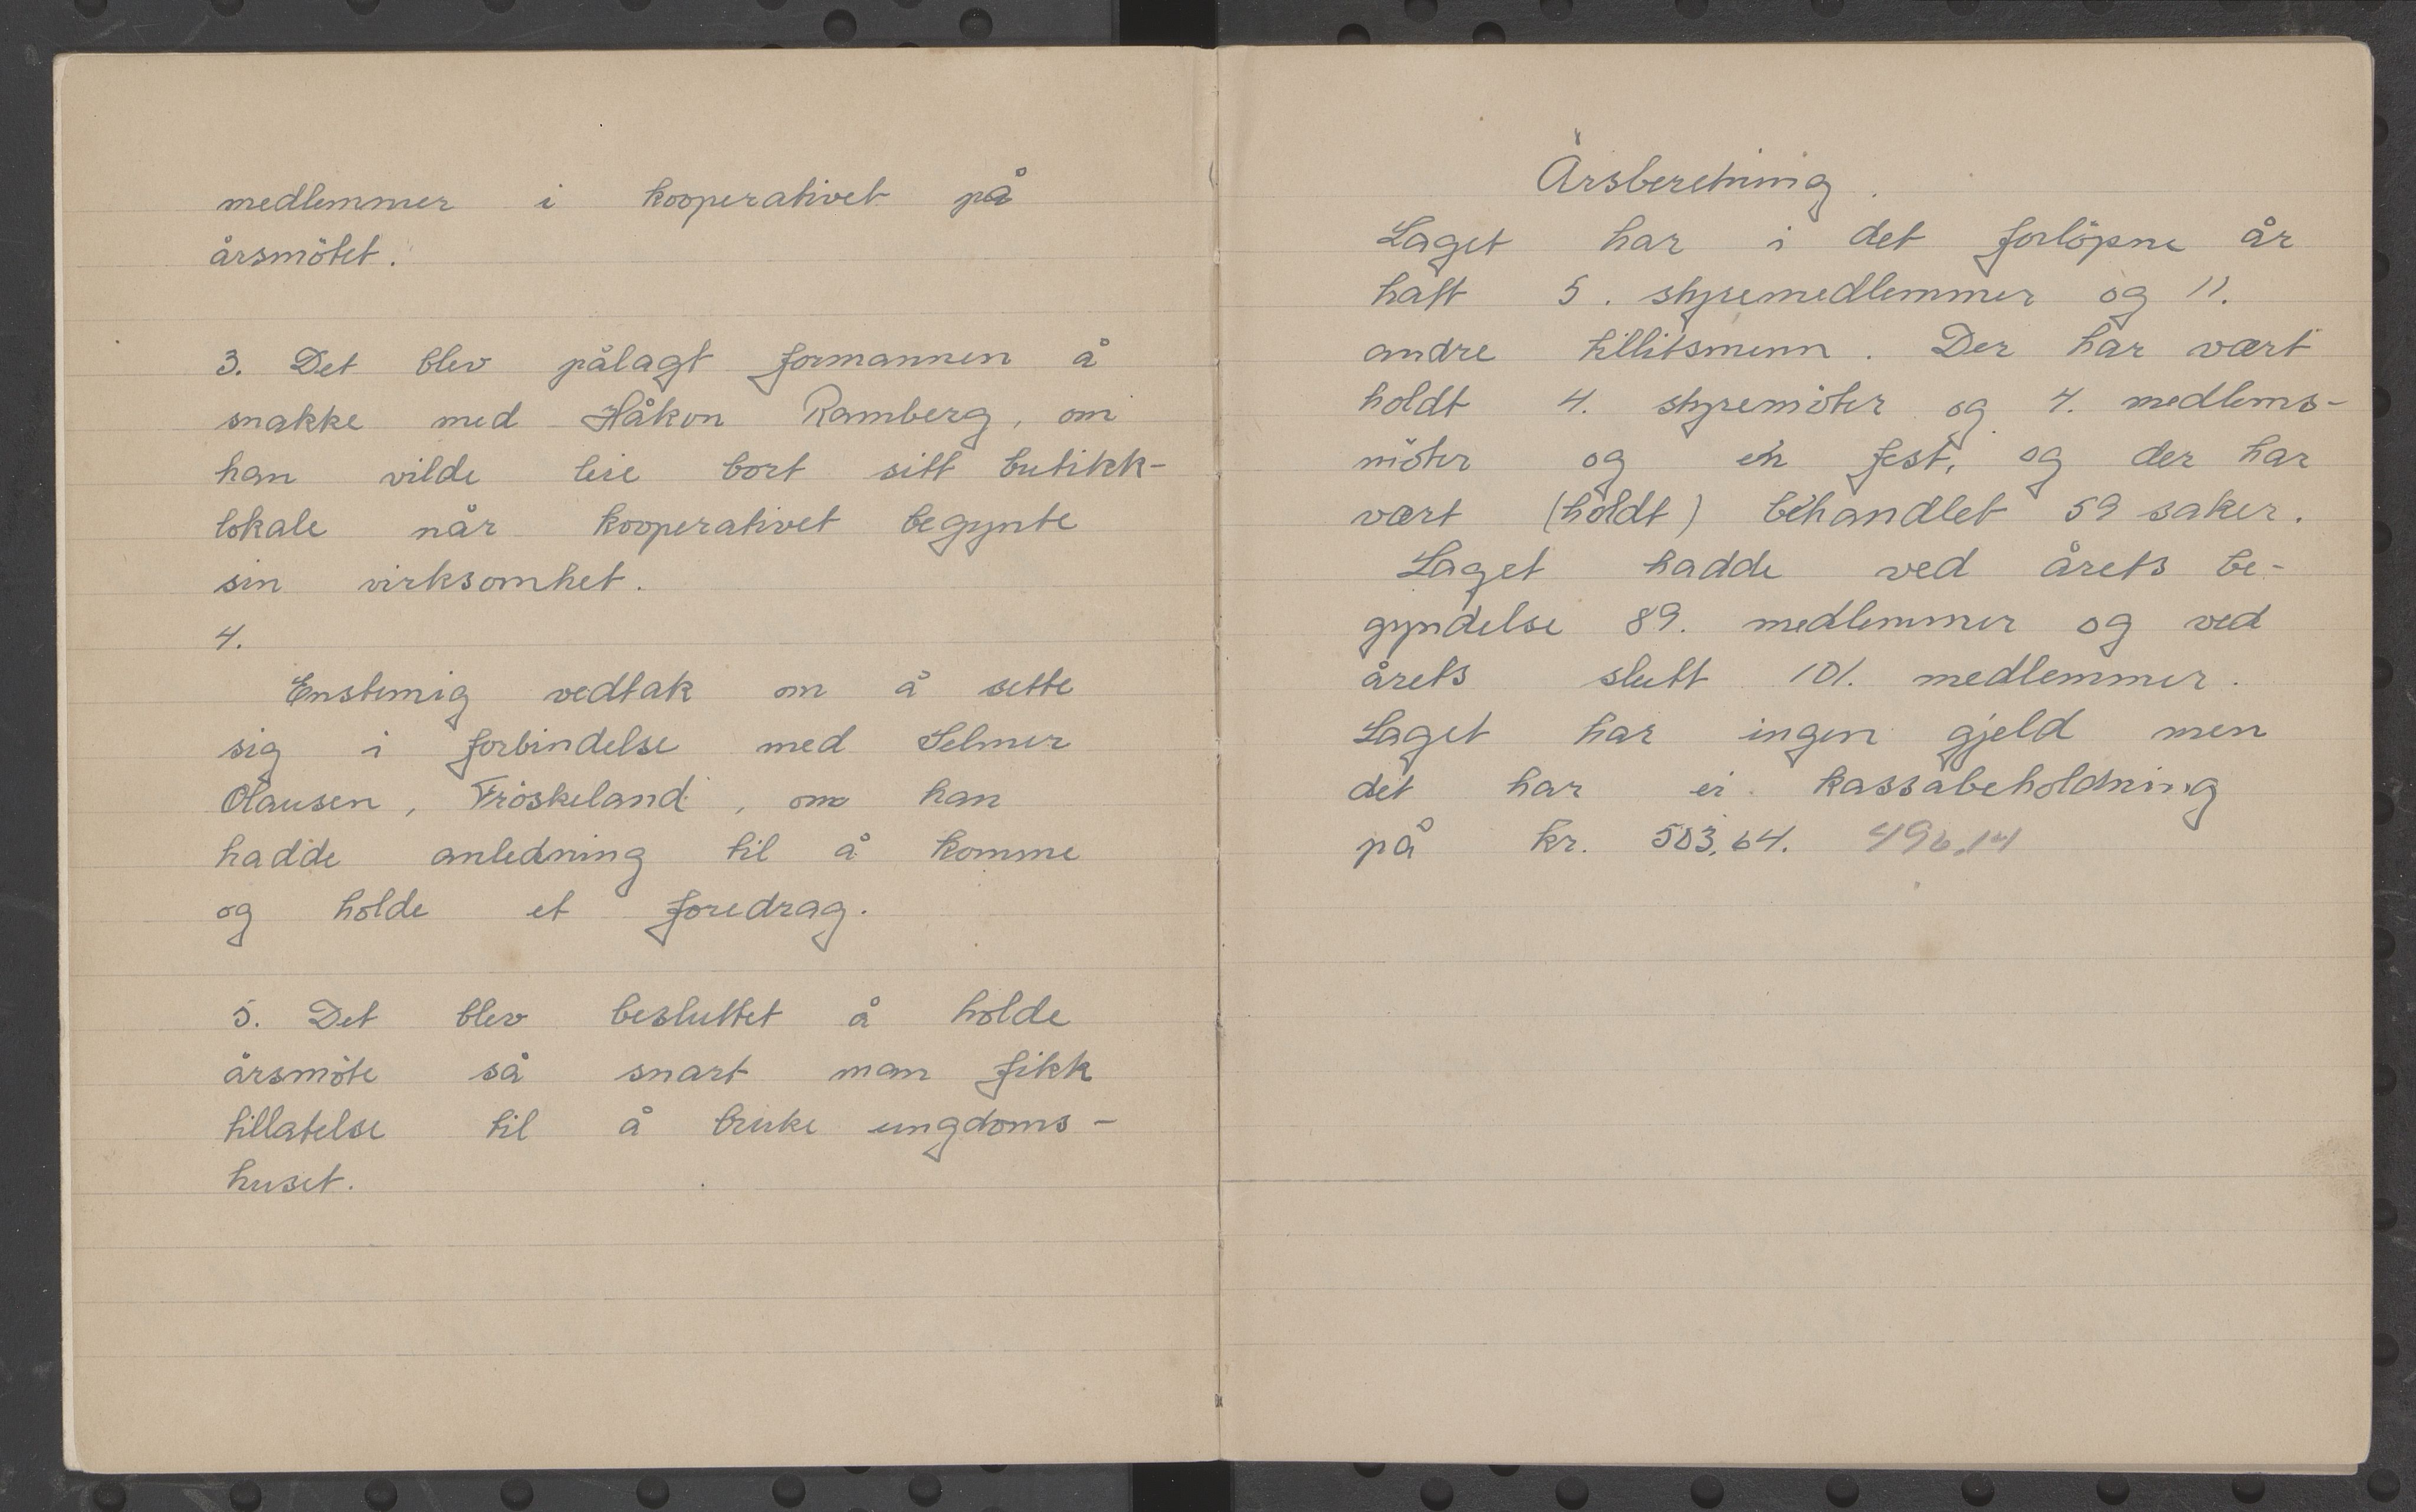 medlemmer i kooperativet på
årsmötet.
3. Det blev pålagt formannen å
snakke med Håkon Ramberg, om
han vilde leie bort sitt butikk-
lokale når kooperativet begynte
sin virksomhet.
4.
Enstemig vedtak om å sette
sig i forbindelse med Selmer
Olausen, Fröskeland, om han
hadde anledning til å komme
og holde et foredrag.
5. Det blev besluttet å holde
årsmöte så snart man fikk
tillatelse til å bruke ungdoms-
huset.
Årsberetning.
Laget har i det forlöpne år
haft 5. styremedlemmer og 11.
andre tillitsmenn. Der har vært
holdt 4. styremöter og 4. medlems-
möter og en fest, og der har
vært (holdt) behandlet 59 saker.
Laget hadde ved årets be-
gyndelse 89. medlemmer og ved
årets slutt 101. medlemmer.
Laget har ingen gjeld men
det har ei kassabeholdning
på kr. 503,64. 496,14